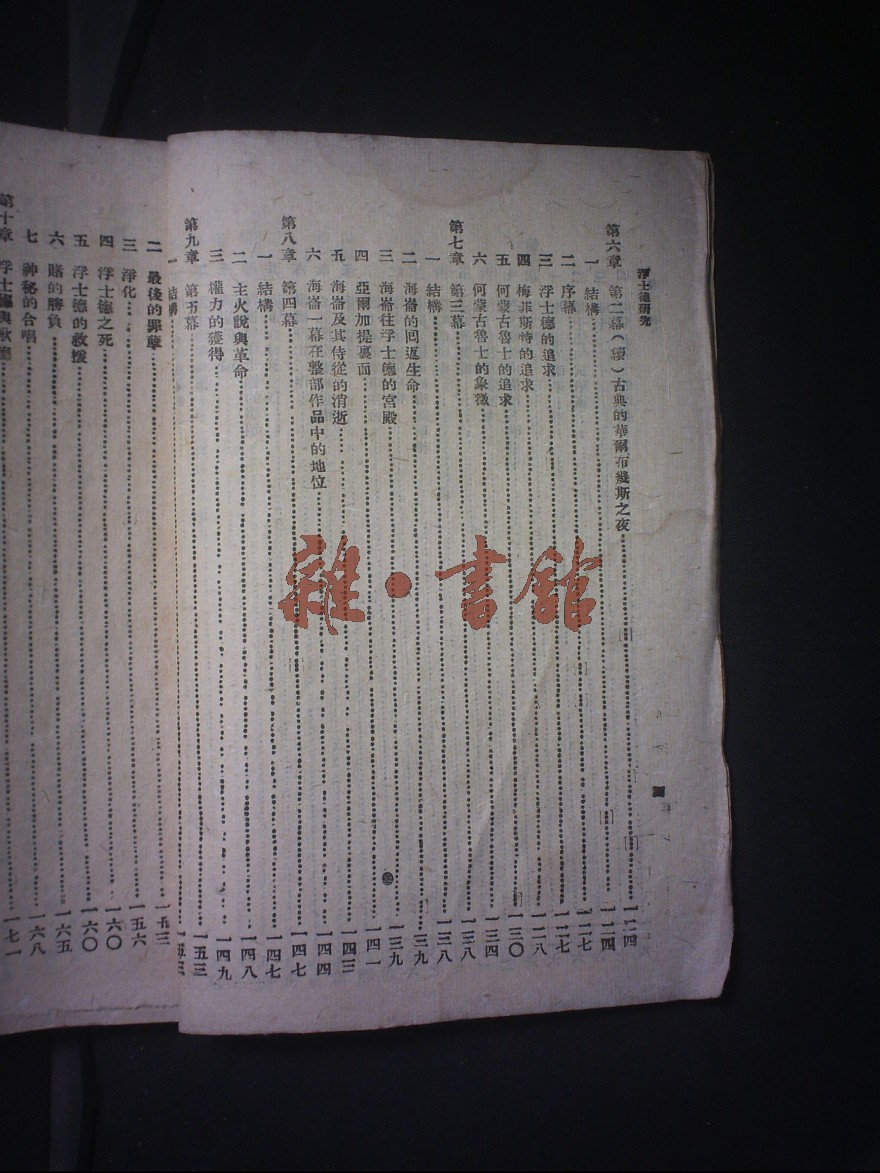 浮士德研究
第六章 第二幕(續)古典的華爾布幾斯之夜 一二四
一 結構 一二四
二 序幕 一二七
三 浮士德的追求 一二七
四 梅菲斯特的追求 一二八
五 何蒙古魯士的追求 一三〇
六 何蒙古魯士的象徵 一三四
第七章 第三幕 一三八
一 結構 一三八
二 海崙的回返生命 一三九
三 海崙往浮士德的宮殿 一三九
四 亞爾加提裏面 一四一
五 海崙及其侍從的消逝 一四三
六 海崙一幕在整部作品中的地位 一四四
第八章 第四幕 一四七
一 結構 一四七
二 主火說與革命 一四八
三 權力的獲得 一四九
第九章 第五幕 一五三
一 結構 一五三
二 最後的罪孽 一五三
三 淨化 一五六
四 浮士德之死 一六〇
五 浮士德的救援 一六〇
六 賭的勝負 一六五
七 神秘的合唱 一六八
第十章 浮士德與歌德 一七一
雜·書館